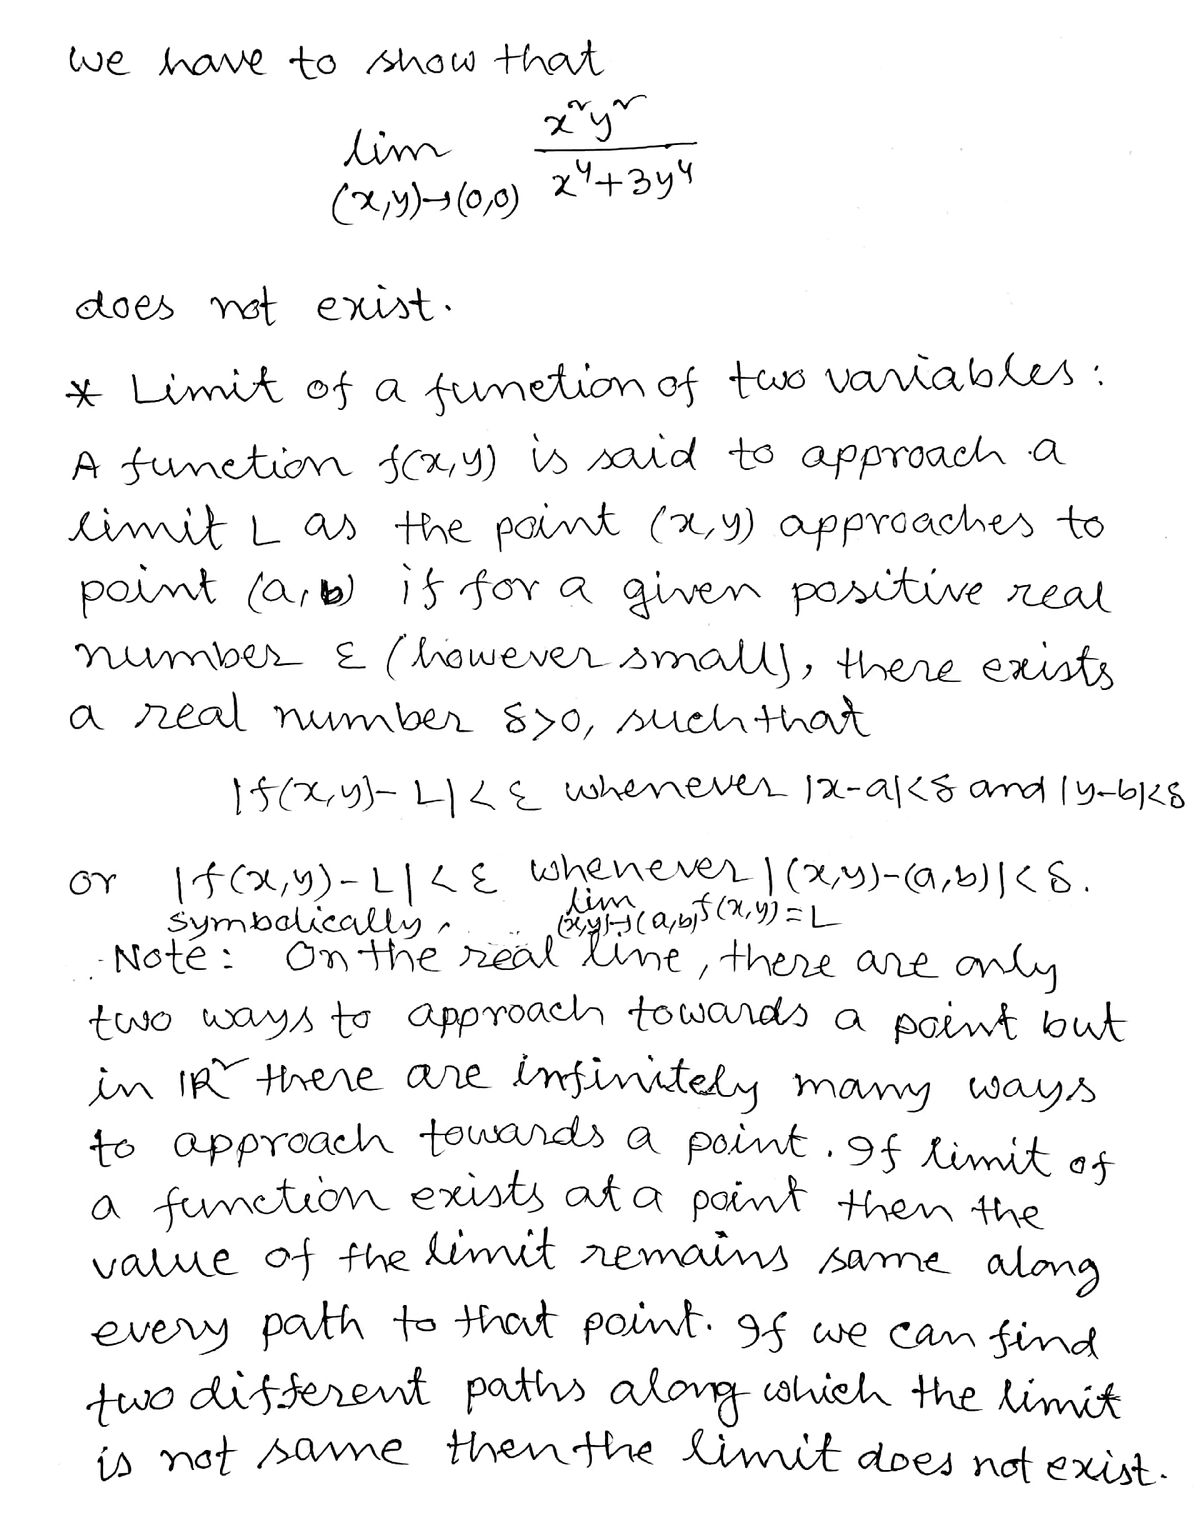 we have to show that
lim x²y²
(x,y)→(0,0) x⁴+3y⁴
does not exist.
* Limit of a function of two variables:
A function f(x,y) is said to approach a
limit L as the point (x,y) approaches to
point (a,b) if for a given positive real
number ε (however small), there exists
a real number δ>0, such that
|f(x,y)-L|<ε whenever |x-a|<δ and |y-b|<δ
or |f(x,y)-L|<ε whenever |(x,y)-(a,b)|<δ.
symbolically, lim (x,y)→(a,b) f(x,y)=L
Note: On the real line, there are only
two ways to approach towards a point but
in IR² there are infinitely many ways
to approach towards a point. If limit of
a function exists at a point then the
value of the limit remains same along
every path to that point. If we can find
two different paths along which the limit
is not same then the limit does not exist.